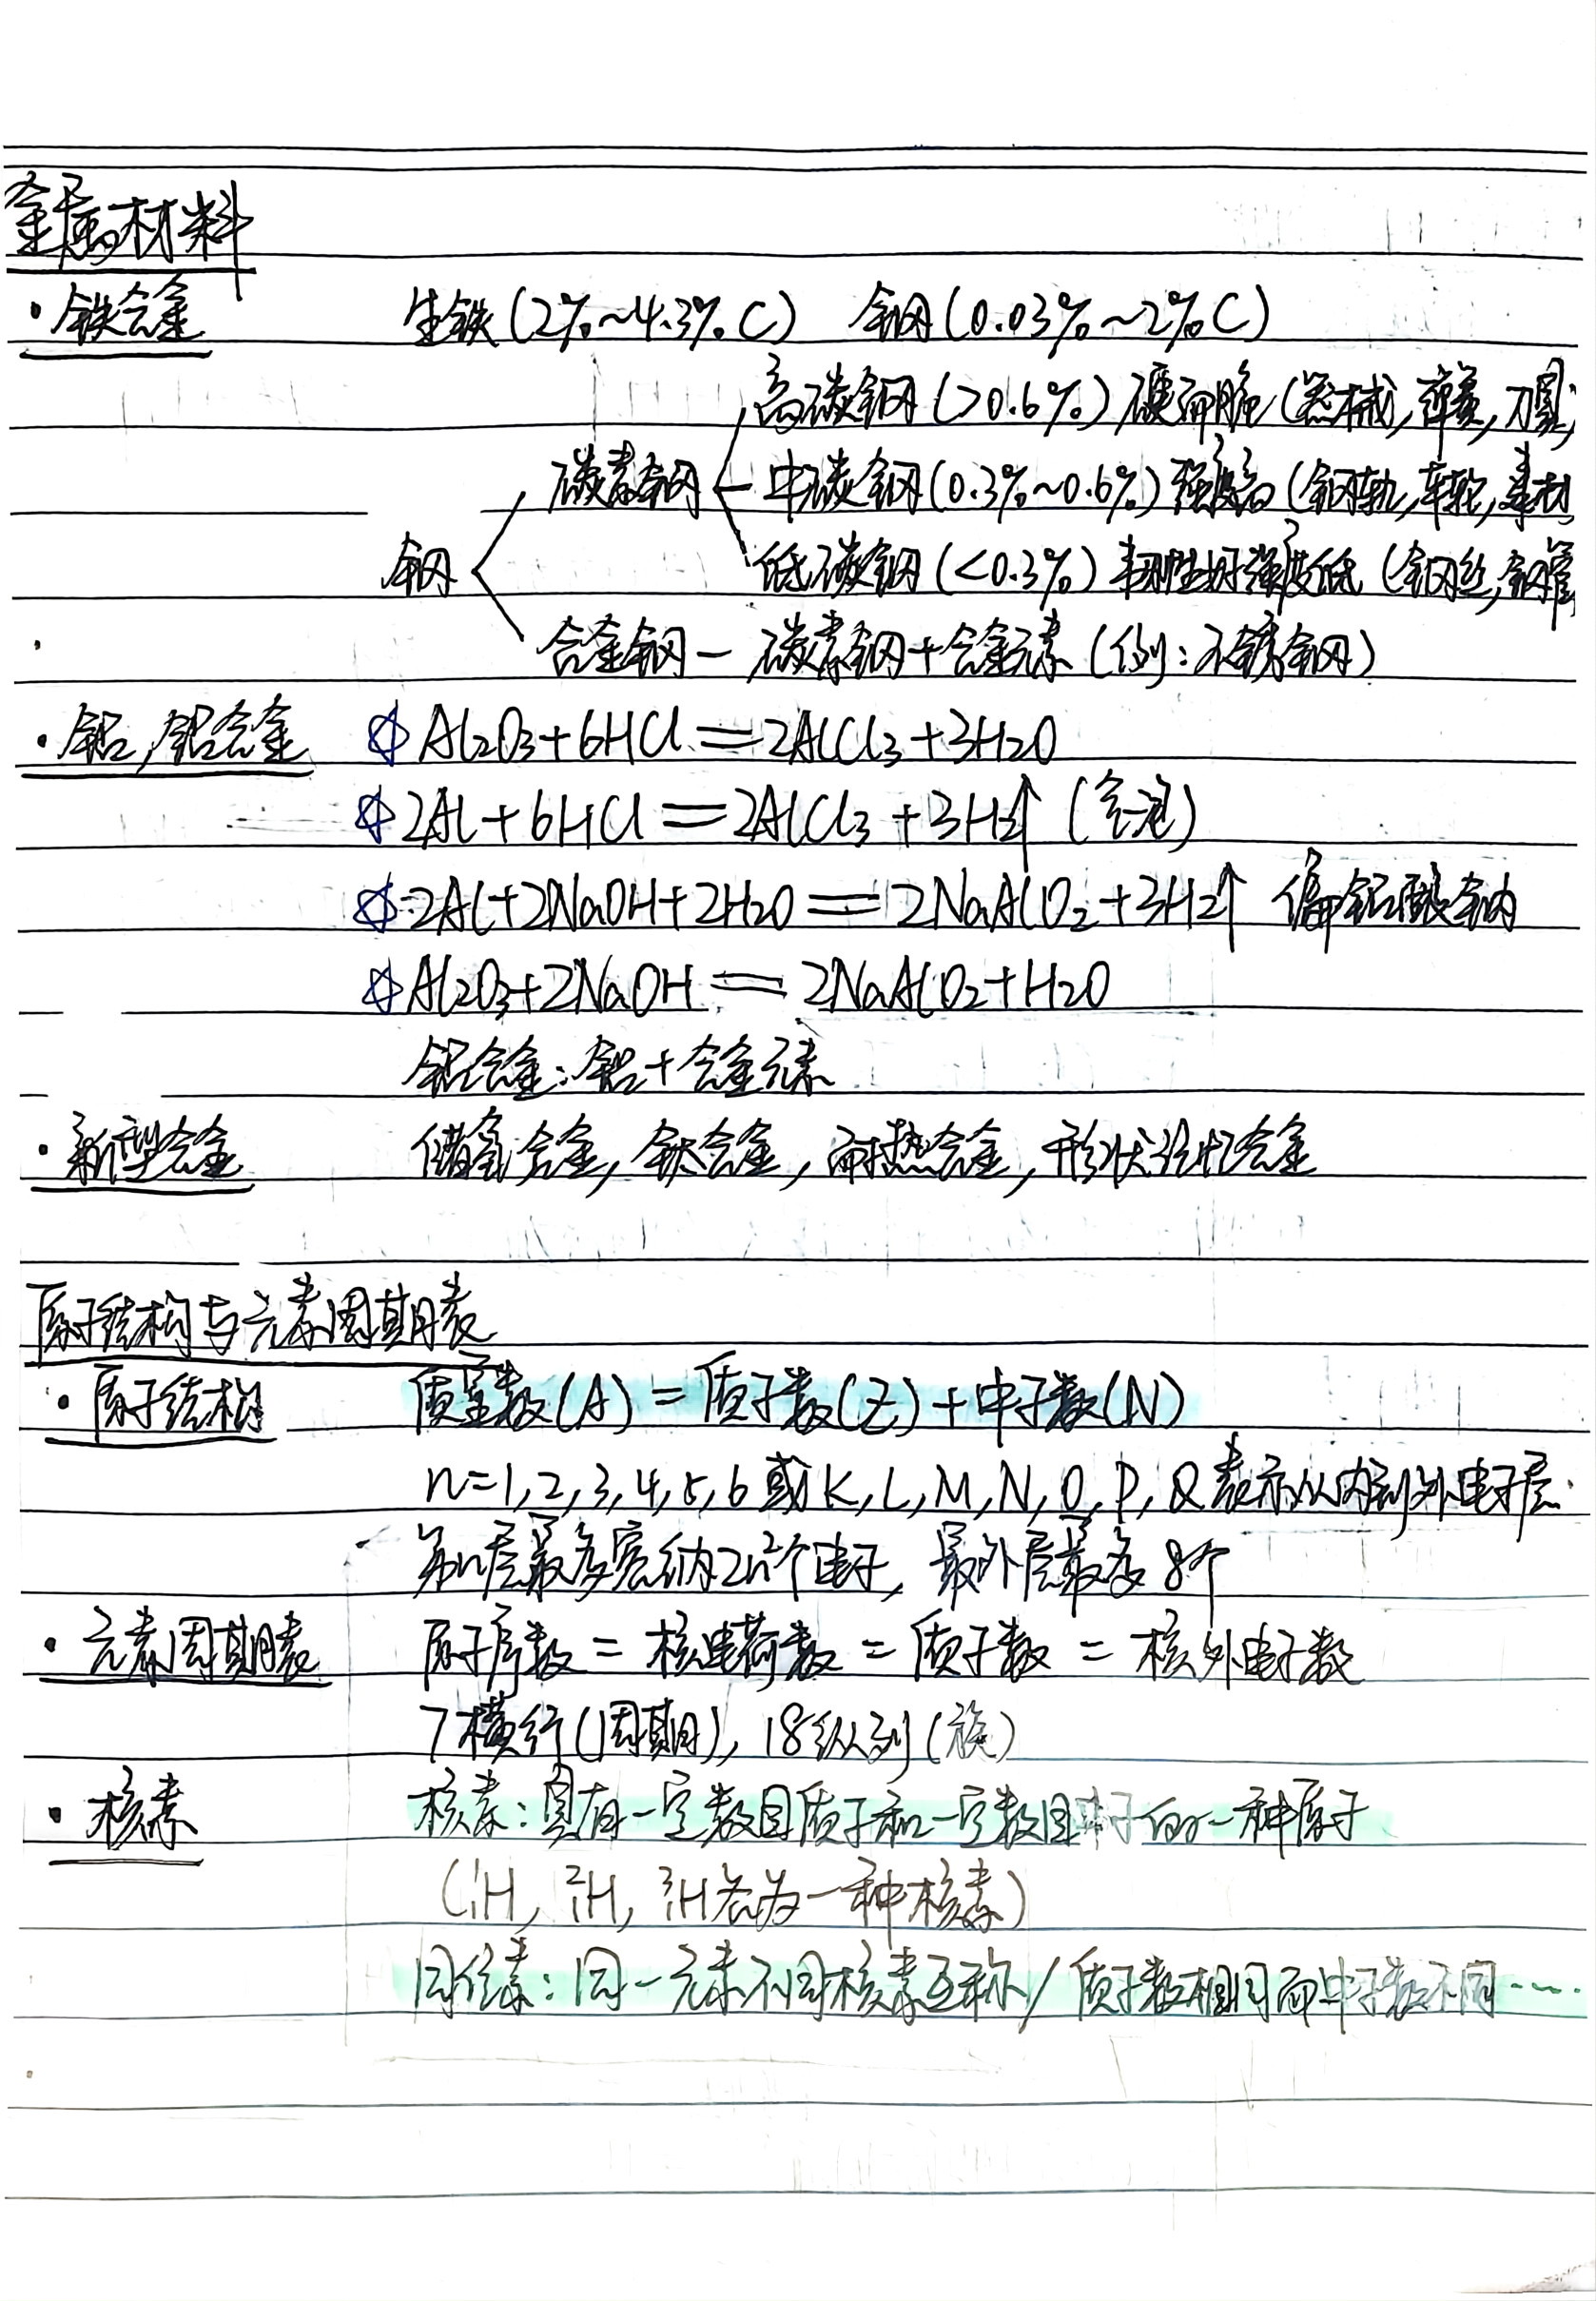 金属材料
·铁合金 生铁(2%~4.3%C) 钢(0.03%~2%C)
高碳钢(>0.6%)硬而脆(器械,弹簧,刀具
碳素钢 中碳钢(0.3%~0.6%)强度高(钢轨,车轮,建材
钢 低碳钢(<0.3%)韧性好强度低(钢丝,钢管
合金钢—碳素钢+合金元素(例:不锈钢)
·铝,铝合金 ☆Al₂O₃+6HCl=2AlCl₃+3H₂O
☆2Al+6HCl=2AlCl₃+3H₂↑(气泡)
☆2Al+2NaOH+2H₂O=2NaAlO₂+3H₂↑ 偏铝酸钠
☆Al₂O₃+2NaOH=2NaAlO₂+H₂O
铝合金:铝+合金元素
·新型合金 储氢合金,钛合金,耐热合金,形状记忆合金
原子结构与元素周期表
·原子结构 质量数(A)=质子数(Z)+中子数(N)
n=1,2,3,4,5,6或K,L,M,N,O,P,Q表示从内到外电子层.
第n层最多容纳2n²个电子,最外层最多8个
·元素周期表 原子序数=核电荷数=质子数=核外电子数
7横行(周期),18纵列(族)
·核素 核素:具有一定数目质子和一定数目中子的一种原子
(¹₁H,²₁H,³₁H各为一种核素)
同位素:同一元素不同核素互称/质子数相同而中子数不同……